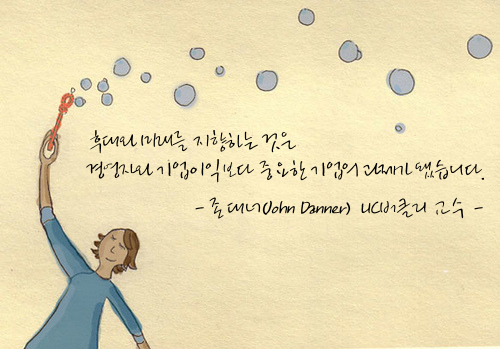 후대와 미래를 지향하는 것은
경영자와 기업이익보다 중요한 기업의 과제가 됐습니다.
- 존 대너(John Danner) UC버클리 교수 -